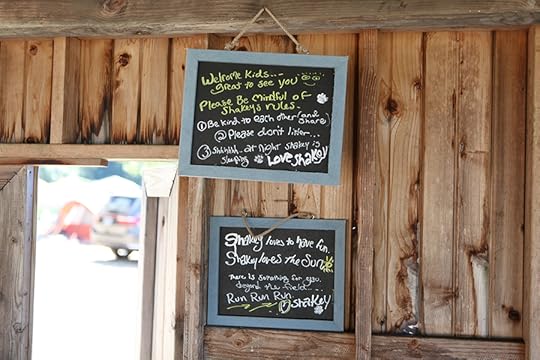 Welcome Kids...
great to see you
Please Be Mindful of
Shakeys rules.
① Be kind to each other (and share)
② Please don't litter...
③ Shhhhh..at Night Shakey is
sleeping Love Shakey
Shakey loves to have fun.
Shakey loves the Sun
There is something for you
beyond the field...
Run Run Run
Shakey